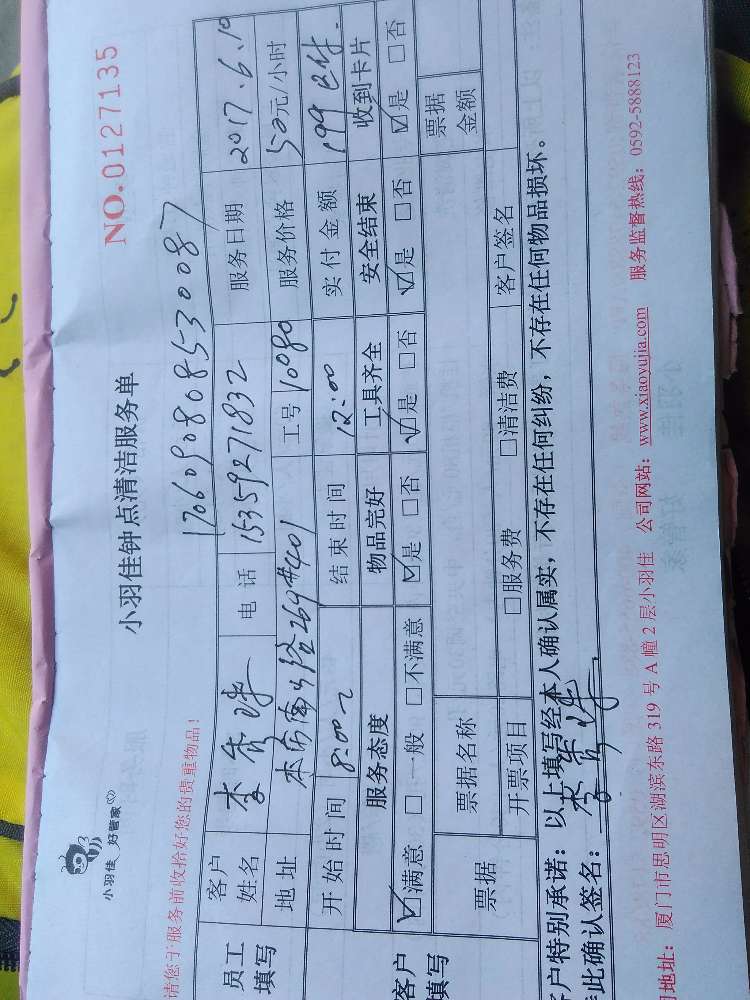 小羽佳 好管家
小羽佳钟点清洁服务单
NO.0127135
请您于服务前收拾好您的贵重物品!
17060908085300 87
员工填写
客户姓名 李秀 电话 15359271832 服务日期 2017.6.10
地址 269#401 工号 10080 服务价格 50元/小时
开始时间 8:00～ 结束时间 12:00 实付金额 199 已付
客户填写
服务态度 物品完好 工具齐全 安全结束 收到卡片
☑满意 □一般 □不满意 ☑是 □否 ☑是 □否 ☑是 □否 ☑是 □否
票据 票据名称 票据金额
开票项目 □服务费 □清洁费 客户签名
户特别承诺：以上填写经本人确认属实，不存在任何纠纷，不存在任何物品损坏。
此确认签名：李秀
地址：厦门市思明区湖滨东路 319 号 A 幢 2 层小羽佳 公司网站：www.xiaoyujia.com 服务监督热线：0592-5888123